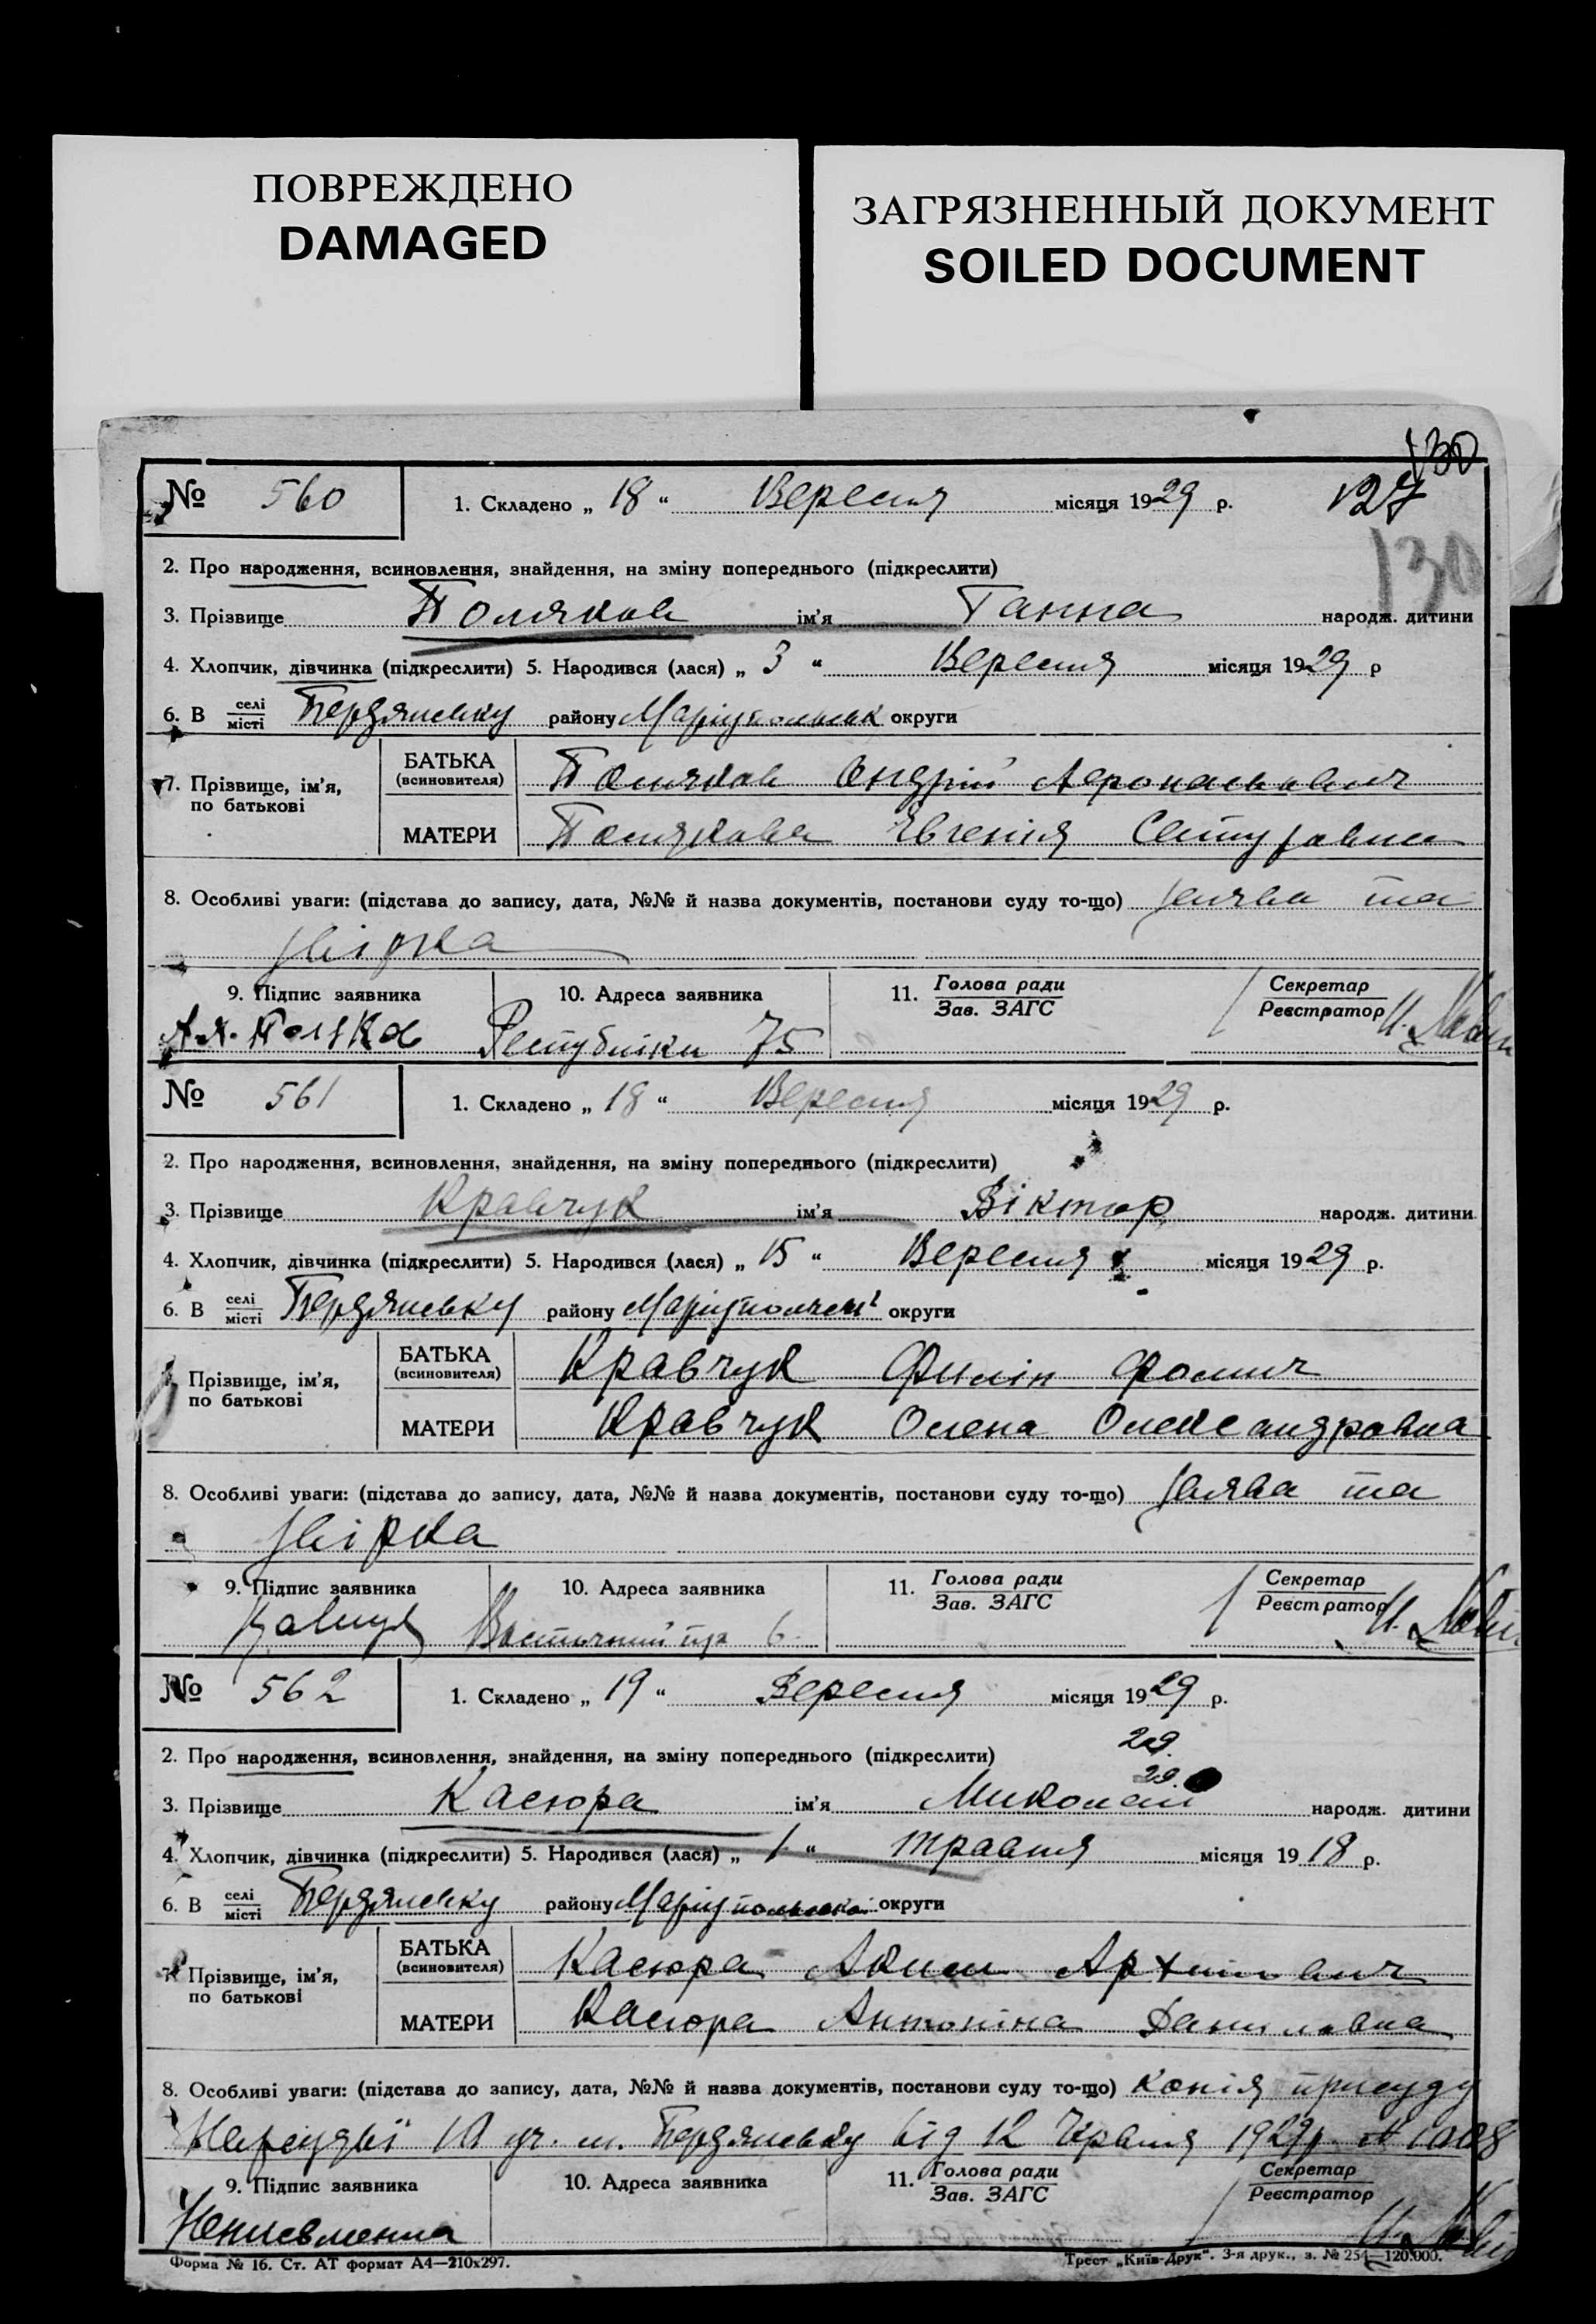 ПОВРЕЖДЕНО
DAMAGED
ЗАГРЯЗНЕННЫЙ ДОКУМЕНТ
SOILED DOCUMENT
130
127
130
№ 560 1. Складено „ 18 “ Вересня місяця 1929 р.
2. Про народження, всиновлення, знайдення, на зміну попереднього (підкреслити)
3. Прізвище Поляков ім'я Ганна народж. дитини
4. Хлопчик, дівчинка (підкреслити) 5. Народився (лася) „ 3 “ Вересня місяця 1929 р
6. В селі місті Бердянську району Маріупольськ округи
7. Прізвище, ім'я, по батькові
БАТЬКА (всиновителя) Поляков Андрій
МАТЕРИ Полякова Євгенія
8. Особливі уваги: (підстава до запису, дата, №№ й назва документів, постанови суду то-що) заява та
звірка
9. Підпис заявника 10. Адреса заявника 11. Голова ради Зав. ЗАГС Секретар Реєстратор
Республіки 75
№ 561 1. Складено „ 18 “ Вересня місяця 1929 р.
2. Про народження, всиновлення, знайдення, на зміну попереднього (підкреслити)
3. Прізвище Кравчук ім'я Віктор народж. дитини
4. Хлопчик, дівчинка (підкреслити) 5. Народився (лася) „ 15 “ Вересня місяця 1929 р.
6. В селі місті Бердянську району округи
7. Прізвище, ім'я, по батькові
БАТЬКА (всиновителя) Кравчук Филіп Фомич
МАТЕРИ Кравчук Олена Олександровна
8. Особливі уваги: (підстава до запису, дата, №№ й назва документів, постанови суду то-що) заява та
звірка
9. Підпис заявника 10. Адреса заявника 11. Голова ради Зав. ЗАГС Секретар Реєстратор
Восточний пр 6
№ 562 1. Складено „ 19 “ Вересня місяця 1929 р.
2. Про народження, всиновлення, знайдення, на зміну попереднього (підкреслити) 29.
29.
3. Прізвище Касюра ім'я Миколай народж. дитини
4. Хлопчик, дівчинка (підкреслити) 5. Народився (лася) „ 1 “ травня місяця 1918 р.
6. В селі місті Бердянську району округи
7. Прізвище, ім'я, по батькові
БАТЬКА (всиновителя) Касюра Аким
МАТЕРИ Касюра Антоніна Даниловна
8. Особливі уваги: (підстава до запису, дата, №№ й назва документів, постанови суду то-що) Копія присуду
Нарсудьї уч. м. Бердянську від 12 1929р.
9. Підпис заявника 10. Адреса заявника 11. Голова ради Зав. ЗАГС Секретар Реєстратор
Неписьменна
Форма № 16. Ст. АТ формат А4—210х297. Трест „Київ-Друк“. 3-я друк., з. № 254—120.000.